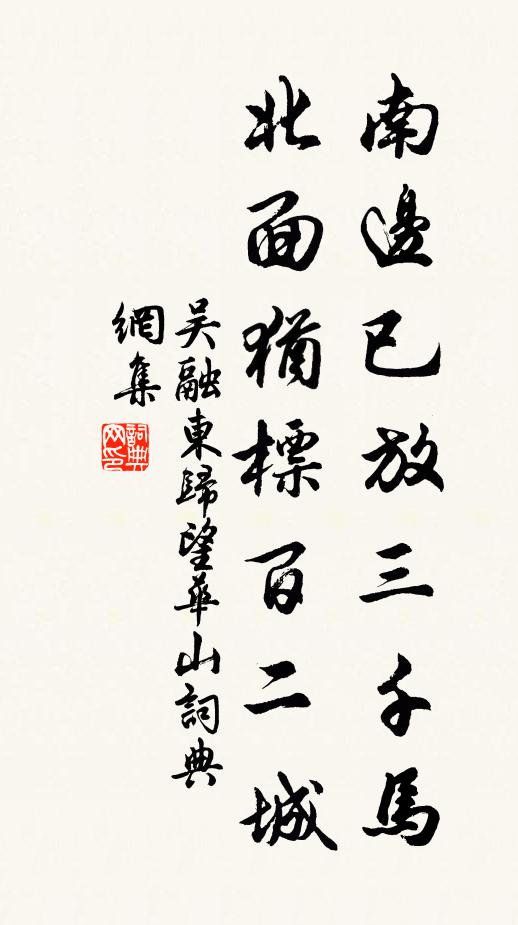 南邊已放三千馬
北面猶標百二城
吴融東歸望華山詞典
網集
詞典
网印